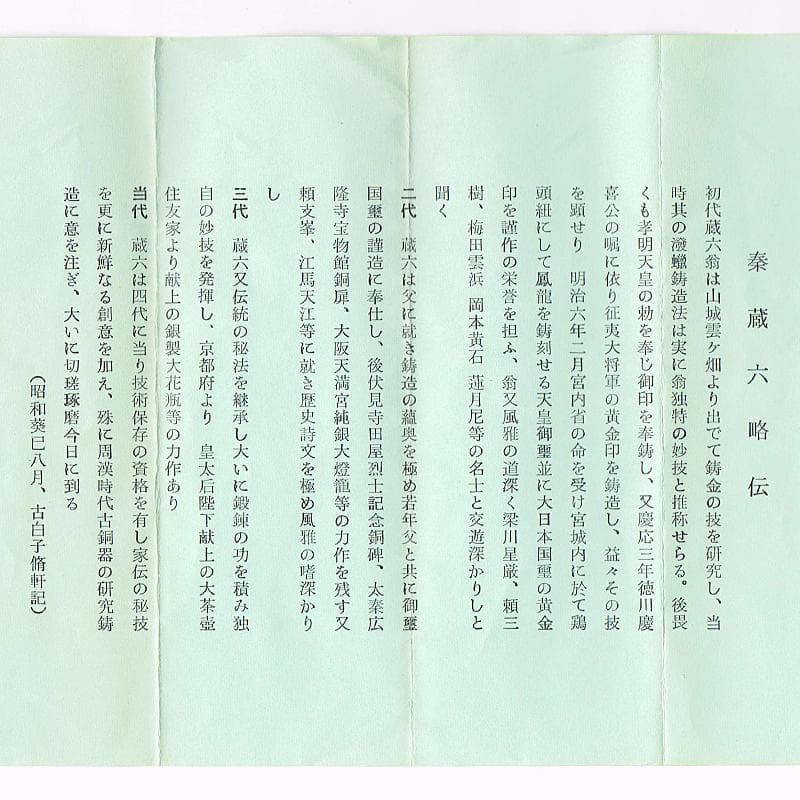 秦蔵六略伝
初代蔵六翁は山城雲ヶ畑より出でて鋳金の技を研究し、当
時其の潑蠟鋳造法は実に翁独特の妙技と推称せらる。後畏
くも孝明天皇の勅を奉じ御印を奉鋳し、又慶応三年徳川慶
喜公の嘱に依り征夷大将軍の黄金印を鋳造し、益々その技
を顕せり　明治六年二月宮内省の命を受け宮城内に於て鶏
頭紐にして鳳龍を鋳刻せる天皇御璽並に大日本国璽の黄金
印を謹作の栄誉を担ふ、翁又風雅の道深く梁川星厳、頼三
樹、梅田雲浜　岡本黄石　蓮月尼等の名士と交遊深かりしと
聞く
二代　蔵六は父に就き鋳造の蘊奥を極め若年父と共に御璽
国璽の謹造に奉仕し、後伏見寺田屋烈士記念銅碑、太秦広
隆寺宝物館銅扉、大阪天満宮純銀大燈籠等の力作を残す又
頼支峯、江馬天江等に就き歴史詩文を極め風雅の嗜深かり
し
三代　蔵六又伝統の秘法を継承し大いに鍛錬の功を積み独
自の妙技を発揮し、京都府より　皇太后陛下献上の大茶壺
住友家より献上の銀製大花瓶等の力作あり
当代　蔵六は四代に当り技術保存の資格を有し家伝の秘技
を更に新鮮なる創意を加え、殊に周漢時代古銅器の研究鋳
造に意を注ぎ、大いに切瑳琢磨今日に到る
（昭和葵巳八月、古白子脩軒記）